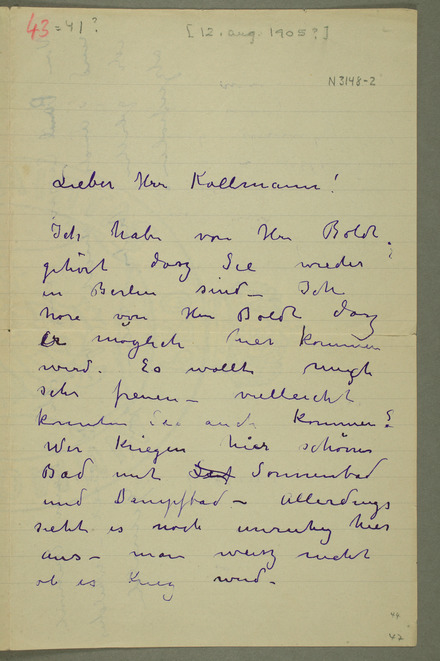 43 = 41?
[12. aug. 1905?]
N3148-2
Lieber Herr Kollmann!
Ich habe von Hrn Boldt
gehört dasz Sie wieder
in Berlin sind – Ich
höre von Hrn Boldt dasz
Er möglich hier kommen
wird. Es wollte mich
sehr freuen – vielleicht
konnten Sie auch kommen?
Wir kriegen hier schönes
Bad mit Sonnenbad
und Dampfbad – allerdings
sieht es noch unruhig hier
aus – man weisz nicht
ob es Krieg wird –
44
42